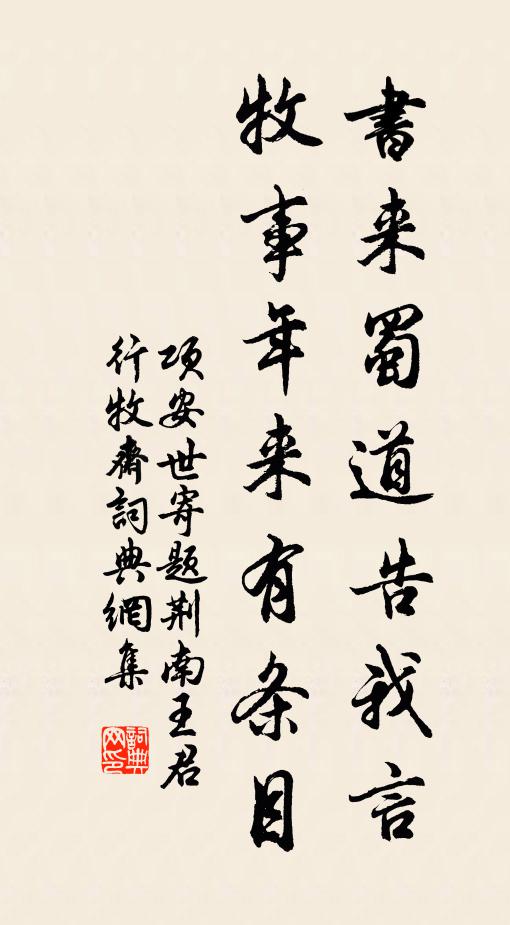 書来蜀道告我言
牧事年来有条目
项安世寄题荆南王君
行牧齋詞典網集
詞典网印